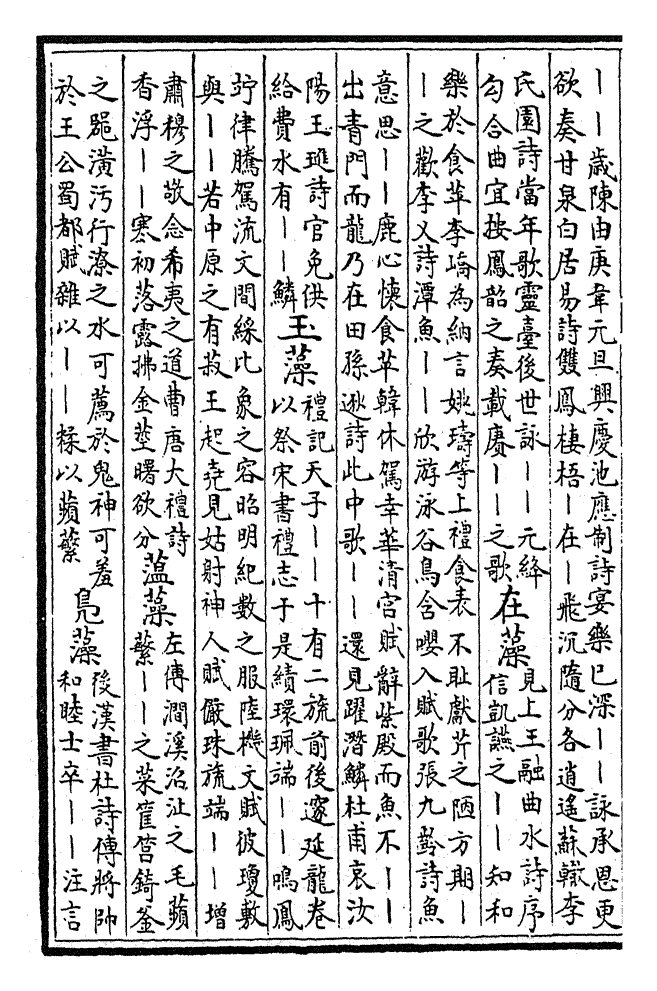 ——歲陳由庚韋元旦興慶池應制詩宴樂已深——詠承恩更
欲奏甘泉白居易詩雙鳳棲梧—在—飛沉隨分各逍遙蘇軾李
氏園詩當年歌靈臺後世詠——元絳
勾合曲宜按鳳韶之奏載賡——之歌
在藻
見上王融曲水詩序
信凱讌之——知和
樂於食苹李嶠為納言姚璹等上禮食表不耻獻芹之陋方期—
—之歡李乂詩潭魚——欣游泳谷鳥含嚶入賦歌張九齡詩魚
意思——鹿心懷食苹韓休駕幸華清宫賦辭紫殿而魚不——
出青門而龍乃在田孫逖詩此中歌——還見躍潛鱗杜甫哀汝
陽王璡詩官免供
給費水有——鱗
玉藻
禮記天子——十有二旒前後邃延龍卷
以祭宋書禮志于是績環珮端——鳴鳳
竚律騰駕流文間綵比象之容昭明紀數之服陸機文賦彼瓊敷
與——若中原之有菽王起堯見姑射神人賦儼珠旒端——增
肅穆之敬念希夷之道曹唐大禮詩
香浮——寒初落露拂金莖曙欲分
薀藻
左傳澗溪沼沚之毛蘋
蘩——之菜筐筥錡釜
之噐潢汚行潦之水可薦於鬼神可羞
於王公蜀都賦雜以——糅以蘋蘩
鳬藻
後漢書杜詩傳將帥
和睦士卒——注言